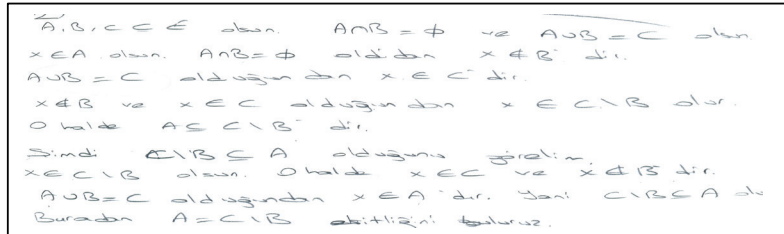 A, B, C ⊂ E olsun. A∩B = ∅ ve A∪B = C olsun
x ∈ A olsun. A∩B = ∅ old.dan x ∉ B dir.
A∪B = C olduğundan x ∈ C dir.
x ∉ B ve x ∈ C olduğundan x ∈ C\B olur.
O halde A ⊆ C\B dir.
Şimdi C\B ⊆ A olduğunu görelim.
x ∈ C\B olsun. O halde x ∈ C ve x ∉ B dir.
A∪B = C olduğundan x ∈ A dır. Yani C\B ⊆ A
Buradan A = C\B eşitliğini buluruz.